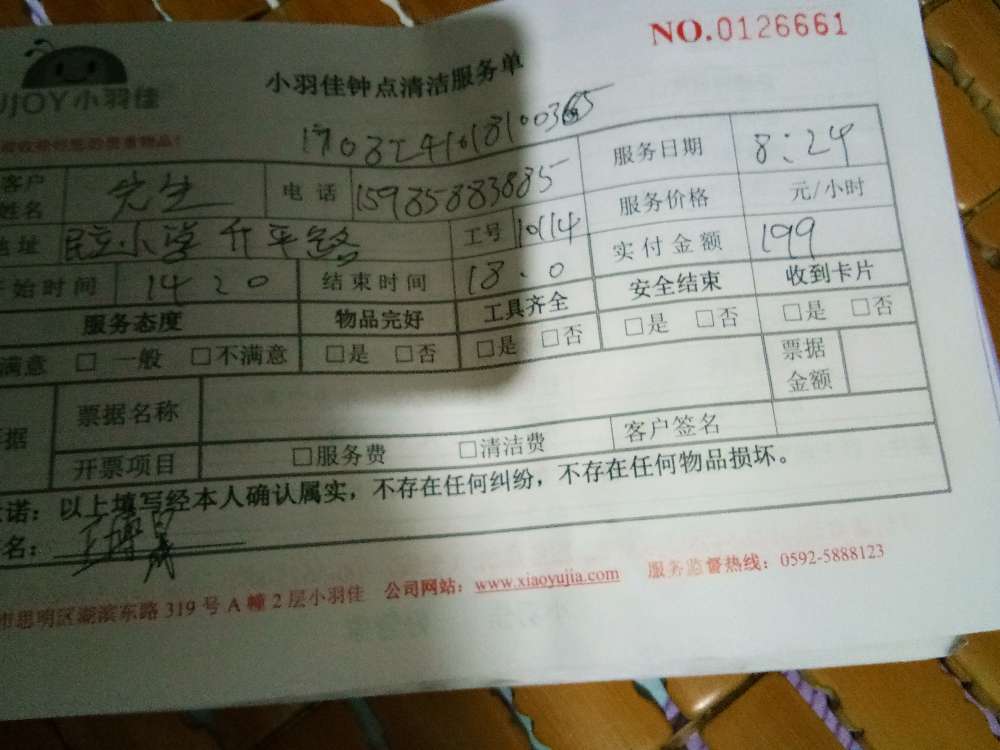 NO.0126661
UJOY小羽佳
小羽佳钟点清洁服务单
1708241018100365
客户姓名 先生 电话 15985883885 服务日期 8:24
服务价格 元/小时
地址 民立小学 升平路 工号 10114 实付金额 199
开始时间 14 20 结束时间 18.0 安全结束 收到卡片
服务态度 物品完好 工具齐全
满意 □ 一般 □不满意 □是 □否 □是 □否 □是 □否 □是 □否
票据名称 票据金额
开票项目 □服务费 □清洁费 客户签名
诺：以上填写经本人确认属实，不存在任何纠纷，不存在任何物品损坏。
名：
市思明区湖滨东路 319 号 A 幢 2 层小羽佳 公司网站：www.xiaoyujia.com 服务监督热线：0592-5888123